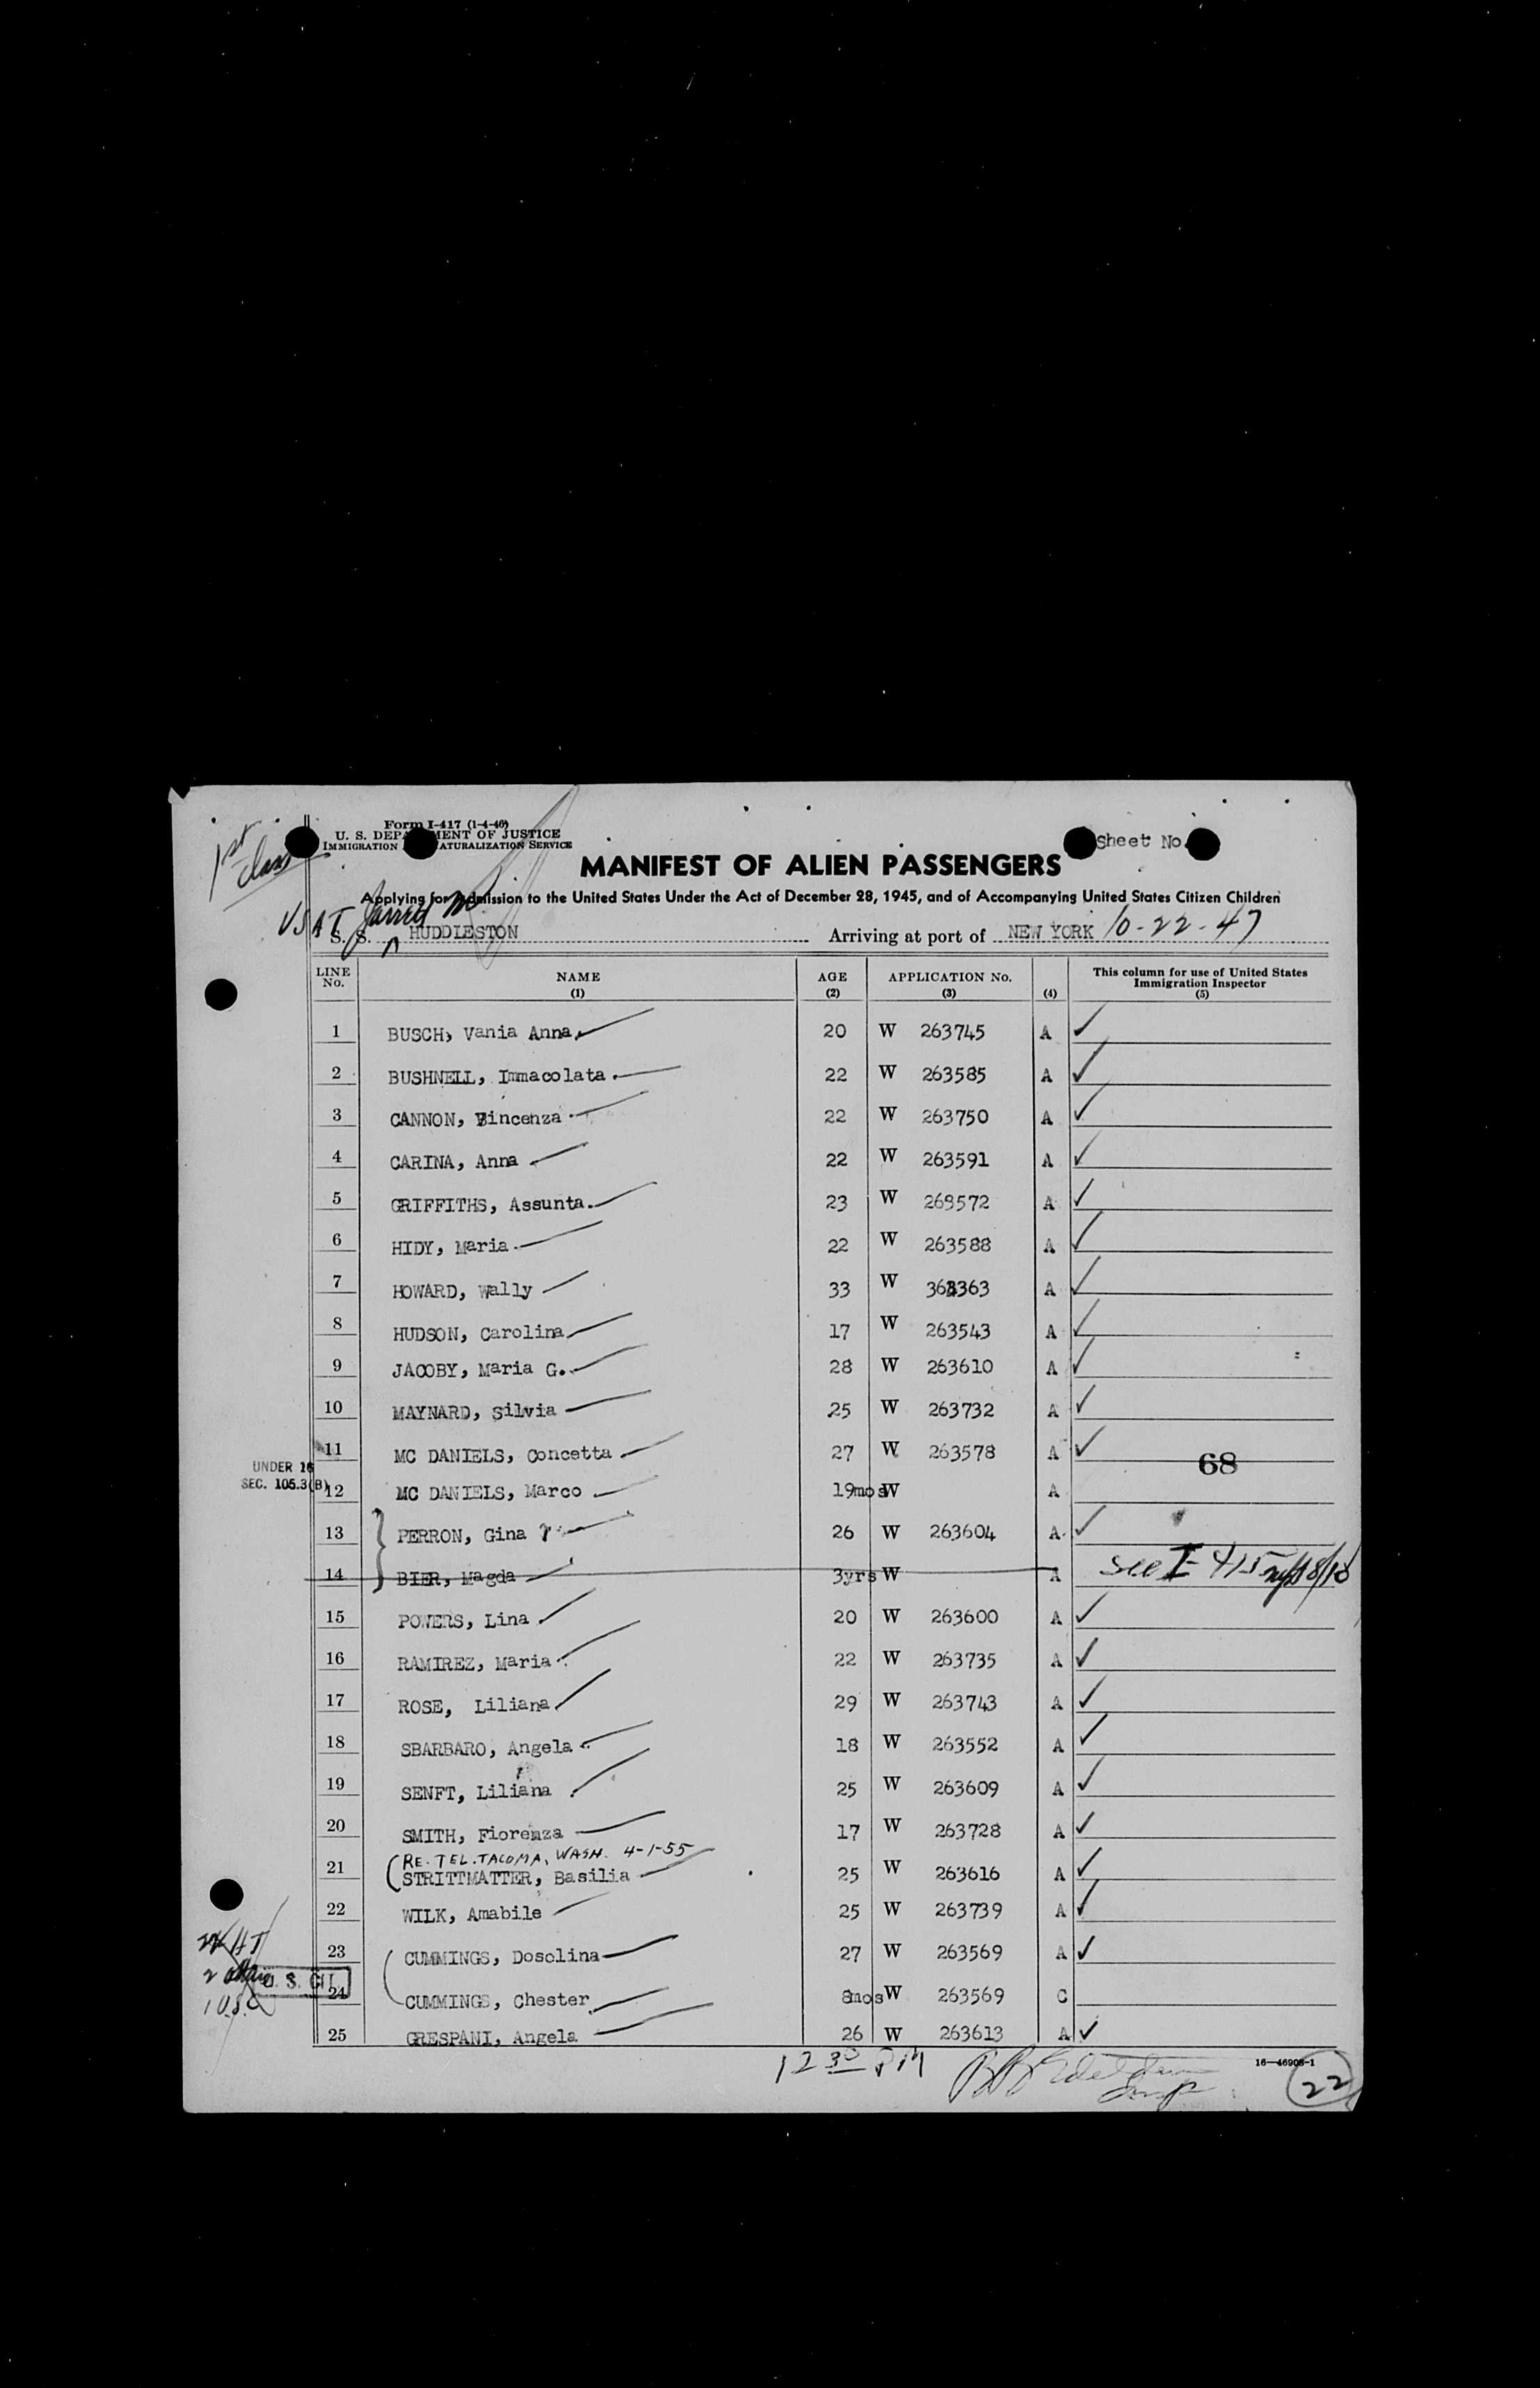 1st class
Form I-417 (1-4-46)
U. S. DEPARTMENT OF JUSTICE
IMMIGRATION NATURALIZATION SERVICE
Sheet No.
MANIFEST OF ALIEN PASSENGERS
Applying for Admission to the United States Under the Act of December 28, 1945, and of Accompanying United States Citizen Children
USAT Jarred M.
S. S. HUDDLESTON Arriving at port of NEW YORK 10-22-47
LINE No. NAME (1) AGE (2) APPLICATION No. (3) (4) This column for use of United States Immigration Inspector (5)
1 BUSCH, Vania Anna 20 W 263745 A ✓
2 BUSHNELL, Immacolata 22 W 263585 A ✓
3 CANNON, Vincenza 22 W 263750 A ✓
4 CARINA, Anna 22 W 263591 A ✓
5 GRIFFITHS, Assunta 23 W 263572 A ✓
6 HIDY, Maria 22 W 263588 A ✓
7 HOWARD, Wally 33 W 363363 A ✓
8 HUDSON, Carolina 17 W 263543 A ✓
9 JACOBY, Maria G. 28 W 263610 A ✓
10 MAYNARD, Silvia 25 W 263732 A ✓
11 MC DANIELS, Concetta 27 W 263578 A ✓
68
UNDER 16
SEC. 105.3(B)
12 MC DANIELS, Marco 19mos W A
13 PERRON, Gina 26 W 263604 A ✓
14 BIER, Magda 3yrs W A see I-415 8/18
15 POWERS, Lina 20 W 263600 A ✓
16 RAMIREZ, Maria 22 W 263735 A ✓
17 ROSE, Liliana 29 W 263743 A ✓
18 SBARBARO, Angela 18 W 263552 A ✓
19 SENFT, Liliana 25 W 263609 A ✓
20 SMITH, Fiorenza 17 W 263728 A ✓
RE. TEL. TACOMA, WASH. 4-1-55
21 STRITTMATTER, Basilia 25 W 263616 A ✓
22 WILK, Amabile 25 W 263739 A ✓
23 CUMMINGS, Dosolina 27 W 263569 A ✓
U. S. CIT.
24 CUMMINGS, Chester 8mos W 263569 C
25 GRESPANI, Angela 26 W 263613 A ✓
12 30 PM
16—46908-1
22